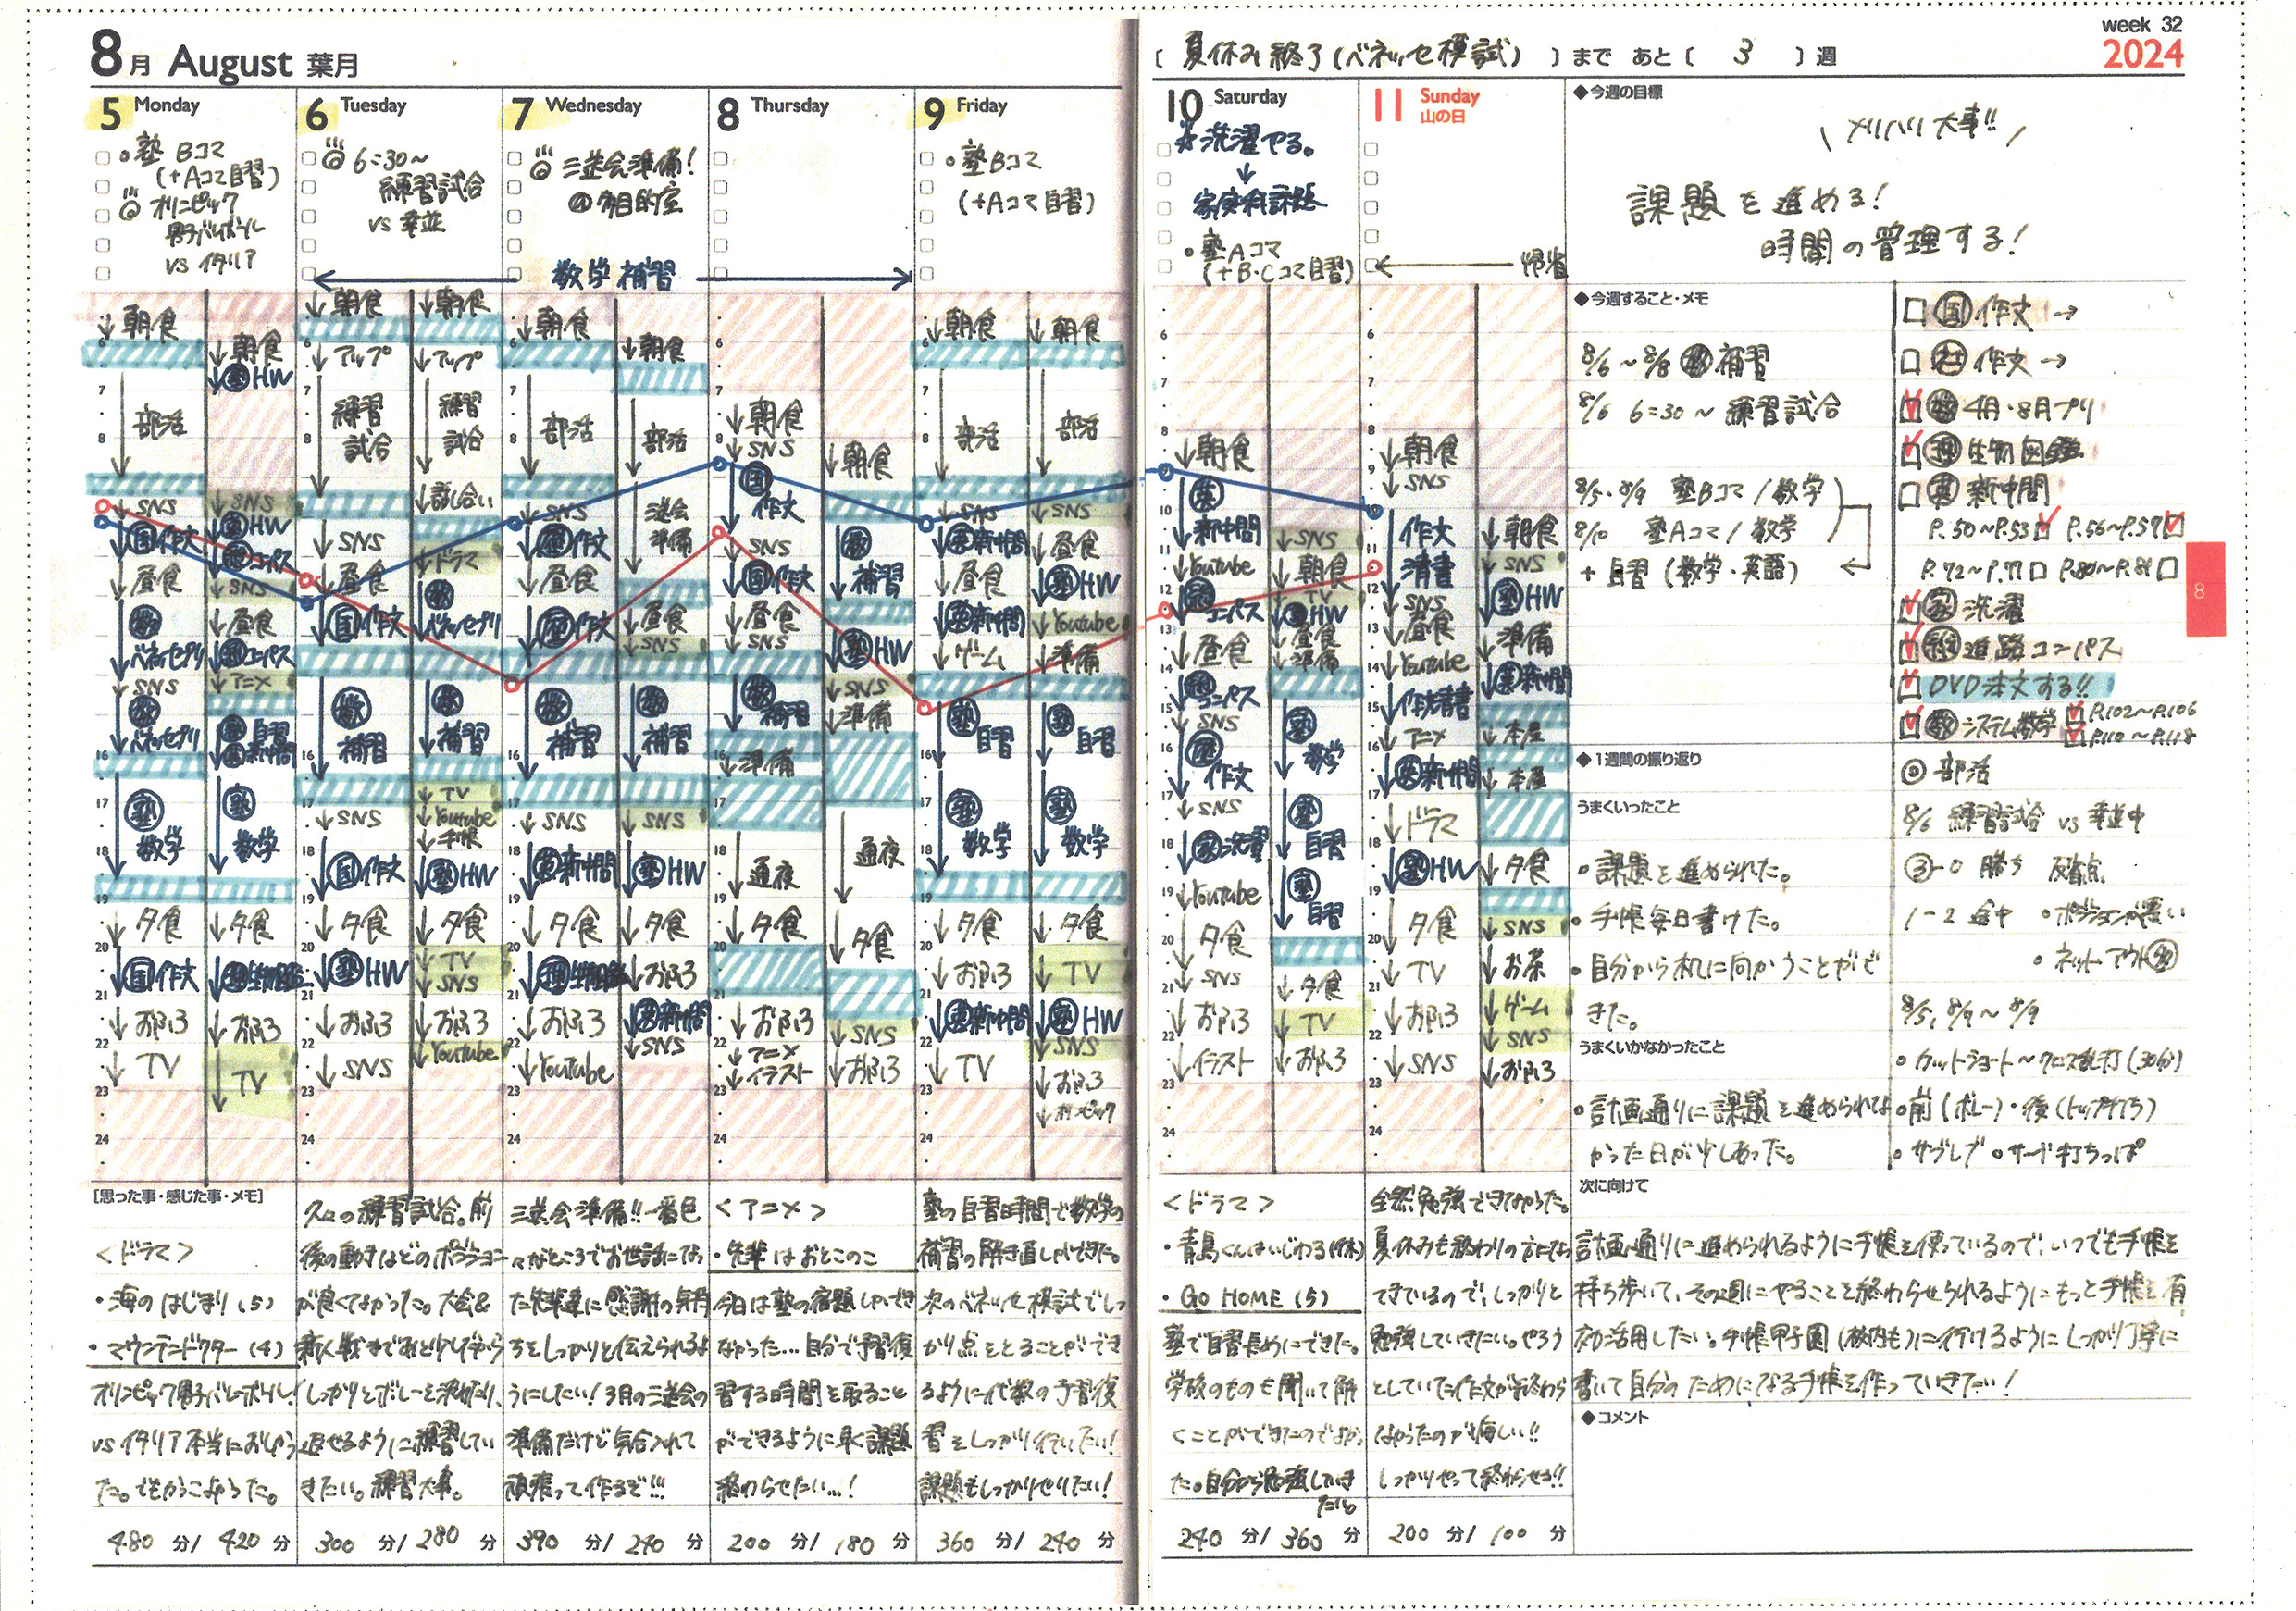 8月 August 葉月
5 Monday
塾 Bコマ
(+Aコマ自習)
オリンピック
男子バレーボール
vs イタリア
6 Tuesday
6:30~
練習試合
vs 幸並
7 Wednesday
三送会準備!
@多目的室
8 Thursday
9 Friday
塾Bコマ
(+Aコマ自習)
数学補習
[夏休み終了(ベネッセ模試)]まで あと[3]週
week 32
2024
10 Saturday
☆洗濯やる。
↓
家庭科課題
・塾Aコマ
(+B・Cコマ自習)
11 Sunday
山の日
← 帰省
◆今週の目標
\ メリハリ大事!! /
課題を進める!
時間の管理する!
朝食
部活
SNS
国作文
昼食
数
ベネッセプリ
SNS
数
ベネッセプリ
塾
数学
夕食
国作文
おふろ
TV
朝食
塾HW
SNS
HW
コンパス
SNS
昼食
コンパス
アニメ
自習
新中問
塾
数学
夕食
おふろ
TV
朝食
アップ
練習
試合
SNS
昼食
国作文
数
補習
SNS
国作文
夕食
塾HW
おふろ
SNS
朝食
アップ
練習
試合
話し合い
ドラマ
数
ベネッセプリ
数
補習
TV
Youtube
手帳
塾HW
夕食
TV
SNS
おふろ
Youtube
朝食
部活
SNS
作文
昼食
作文
数
補習
SNS
英新中問
夕食
おふろ
Youtube
朝食
部活
送会
準備
昼食
SNS
数
補習
SNS
塾HW
夕食
おふろ
英新中問
SNS
朝食
SNS
国
作文
SNS
国作文
昼食
SNS
数
補習
準備
通夜
夕食
おふろ
アニメ
イラスト
朝食
数
補習
塾HW
SNS
準備
通夜
夕食
SNS
おふろ
朝食
部活
SNS
英新中問
昼食
英新中問
ゲーム
塾
自習
塾
数学
夕食
おふろ
英新中問
TV
朝食
部活
SNS
昼食
塾HW
Youtube
準備
塾
自習
塾
数学
夕食
TV
塾HW
SNS
おふろ
オリンピック
朝食
英
新中問
Youtube
総
コンパス
昼食
総
コンパス
SNS
作文
SNS
家洗濯
Youtube
夕食
SNS
おふろ
イラスト
SNS
朝食
TV
塾HW
昼食
準備
塾
数学
塾
自習
塾
自習
夕食
TV
おふろ
朝食
SNS
作文
清書
SNS
昼食
Youtube
作文清書
アニメ
英新中問
ドラマ
塾HW
夕食
TV
おふろ
SNS
朝食
SNS
塾HW
準備
英新中問
本屋
本屋
夕食
SNS
お茶
ゲーム
SNS
おふろ
◆今週すること・メモ
8/6~8/8 数補習
8/6 6:30~ 練習試合
8/5・8/9 塾Bコマ/数学
8/10 塾Aコマ/数学
+自習(数学・英語)
□国作文→
□社作文→
4月・8月プリ
理生物図鑑
□英新中問
P.50~P.53 P.56~P.59
P.72~P.77□ P.80~P.81□
家洗濯
総進路コンパス
DVD注文する!!
数システム数学 P.102~P.106
P.110~P.118
部活
8/6 練習試合 vs 幸並中
③-0 勝ち 反省点
1-2 途中 ・ポジションが悪い
・ネットアウト多
8/5, 8/9~8/9
・カットショート~クロス乱打(30分)
・前(ボレー)・後(トップ打ち)
・サブレブ ・サード打ちっぱ
◆1週間の振り返り
うまくいったこと
・課題を進められた。
・手帳毎日書けた。
・自分から机に向かうことがで
きた。
うまくいかなかったこと
・計画通りに課題を進められな
かった日が少しあった。
次に向けて
計画通りに進められるように手帳を使っているので、いつでも手帳を
持ち歩いて、その週にやることを終わらせられるようにもっと手帳を有
効活用したい。手帳甲子園(校内も)に行けるようにしっかり丁寧に
書いて自分のためになる手帳を作っていきたい!
◆コメント
[思った事・感じた事・メモ]
<ドラマ>
・海のはじまり(5)
・マウンテンドクター(4)
オリンピック男子バレーボール!
vsイタリア本当におしかっ
た。でもかっこよかった。
480 分/ 420 分
久々の練習試合。前
後の動きはどのポジション
が良くなかった。大会&
新人戦まであと少しだから
しっかりとボレーを決めたり、
返せるように練習してい
きたい。練習大事。
300 分/ 280 分
三送会準備!!一番色
々なところでお世話になっ
た先輩達に感謝の気持
ちをしっかりと伝えられるよ
うにしたい!3月の三送会の
準備だけど気合入れて
頑張って作るぞ!!!
390 分/ 240 分
<アニメ>
・先輩はおとこのこ
今日は塾の宿題しかでき
なかった…自分で予習復
習する時間を取ること
ができるように早く課題
終わらせたい…!
200 分/ 180 分
塾の自習時間で数学の
補習の解き直しができた。
次のベネッセ模試でしっ
かり点をとることができ
るように代数の予習復
習をしっかり行いたい!
課題もしっかりやりたい!
360 分/ 240 分
<ドラマ>
・青島くんはいじわる(休)
・GO HOME(5)
塾で自習長めにできた。
学校のものも聞いて解
くことができたのでよかっ
た。自分から勉強していき
たい。
240 分/ 360 分
全然勉強できなかった。
夏休みも終わりの方になっ
てきているので、しっかりと
勉強していきたい。やろう
としていた作文が終わら
なかったのが悔しい!!
しっかりやって終わらせる!!
200 分/ 100 分
8